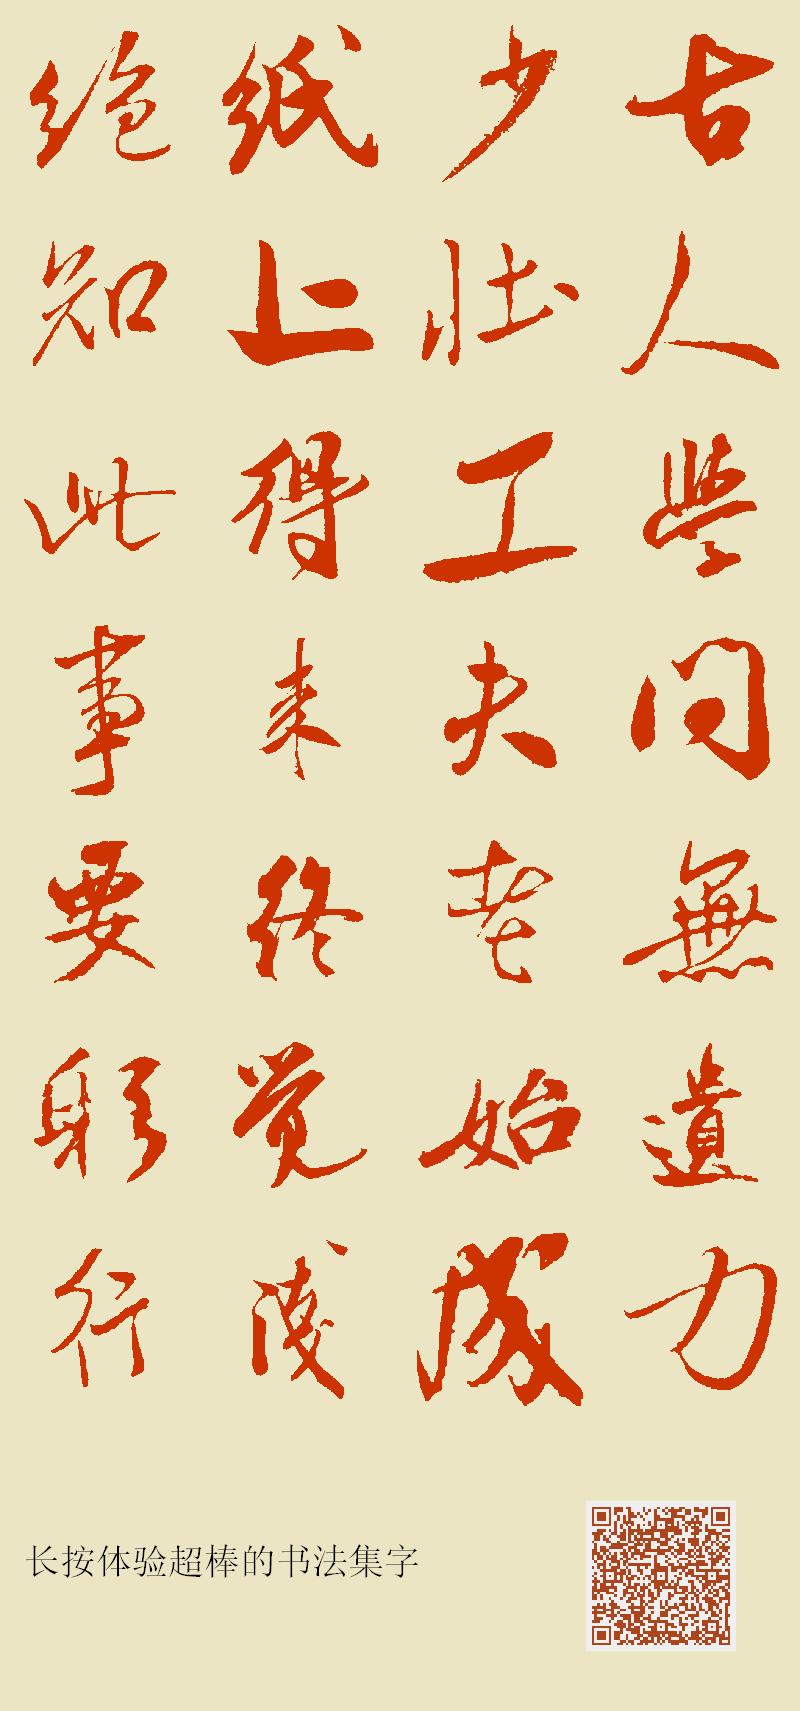 古人學問無遺力
少壯工夫老始成
紙上得来終覺淺
絶知此事要躬行
长按体验超棒的书法集字